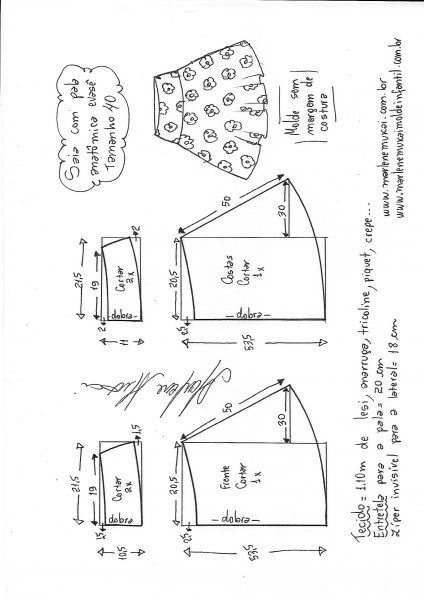 Saia com pala
anatômica evasê
Tamanho 40
Molde sem
margem de
costura
21,5
19
Cortar
2x
dobra
2
2
11
20,5
50
30
Costas
Cortar
1x
dobra
2,5
53,5
Marlene Mukai
21,5
19
Cortar
2x
dobra
1,5
1,5
10,5
20,5
50
30
Frente
Cortar
1x
dobra
2,5
53,5
Tecido = 1.10m de lesi, anarruga, tricoline, piquet, crepe...
Entretela para a pala = 20 cm
Zíper invisível para a lateral = 18 cm
www.marlenemukai.com.br
www.marlenemukaimoldeinfantil.com.br